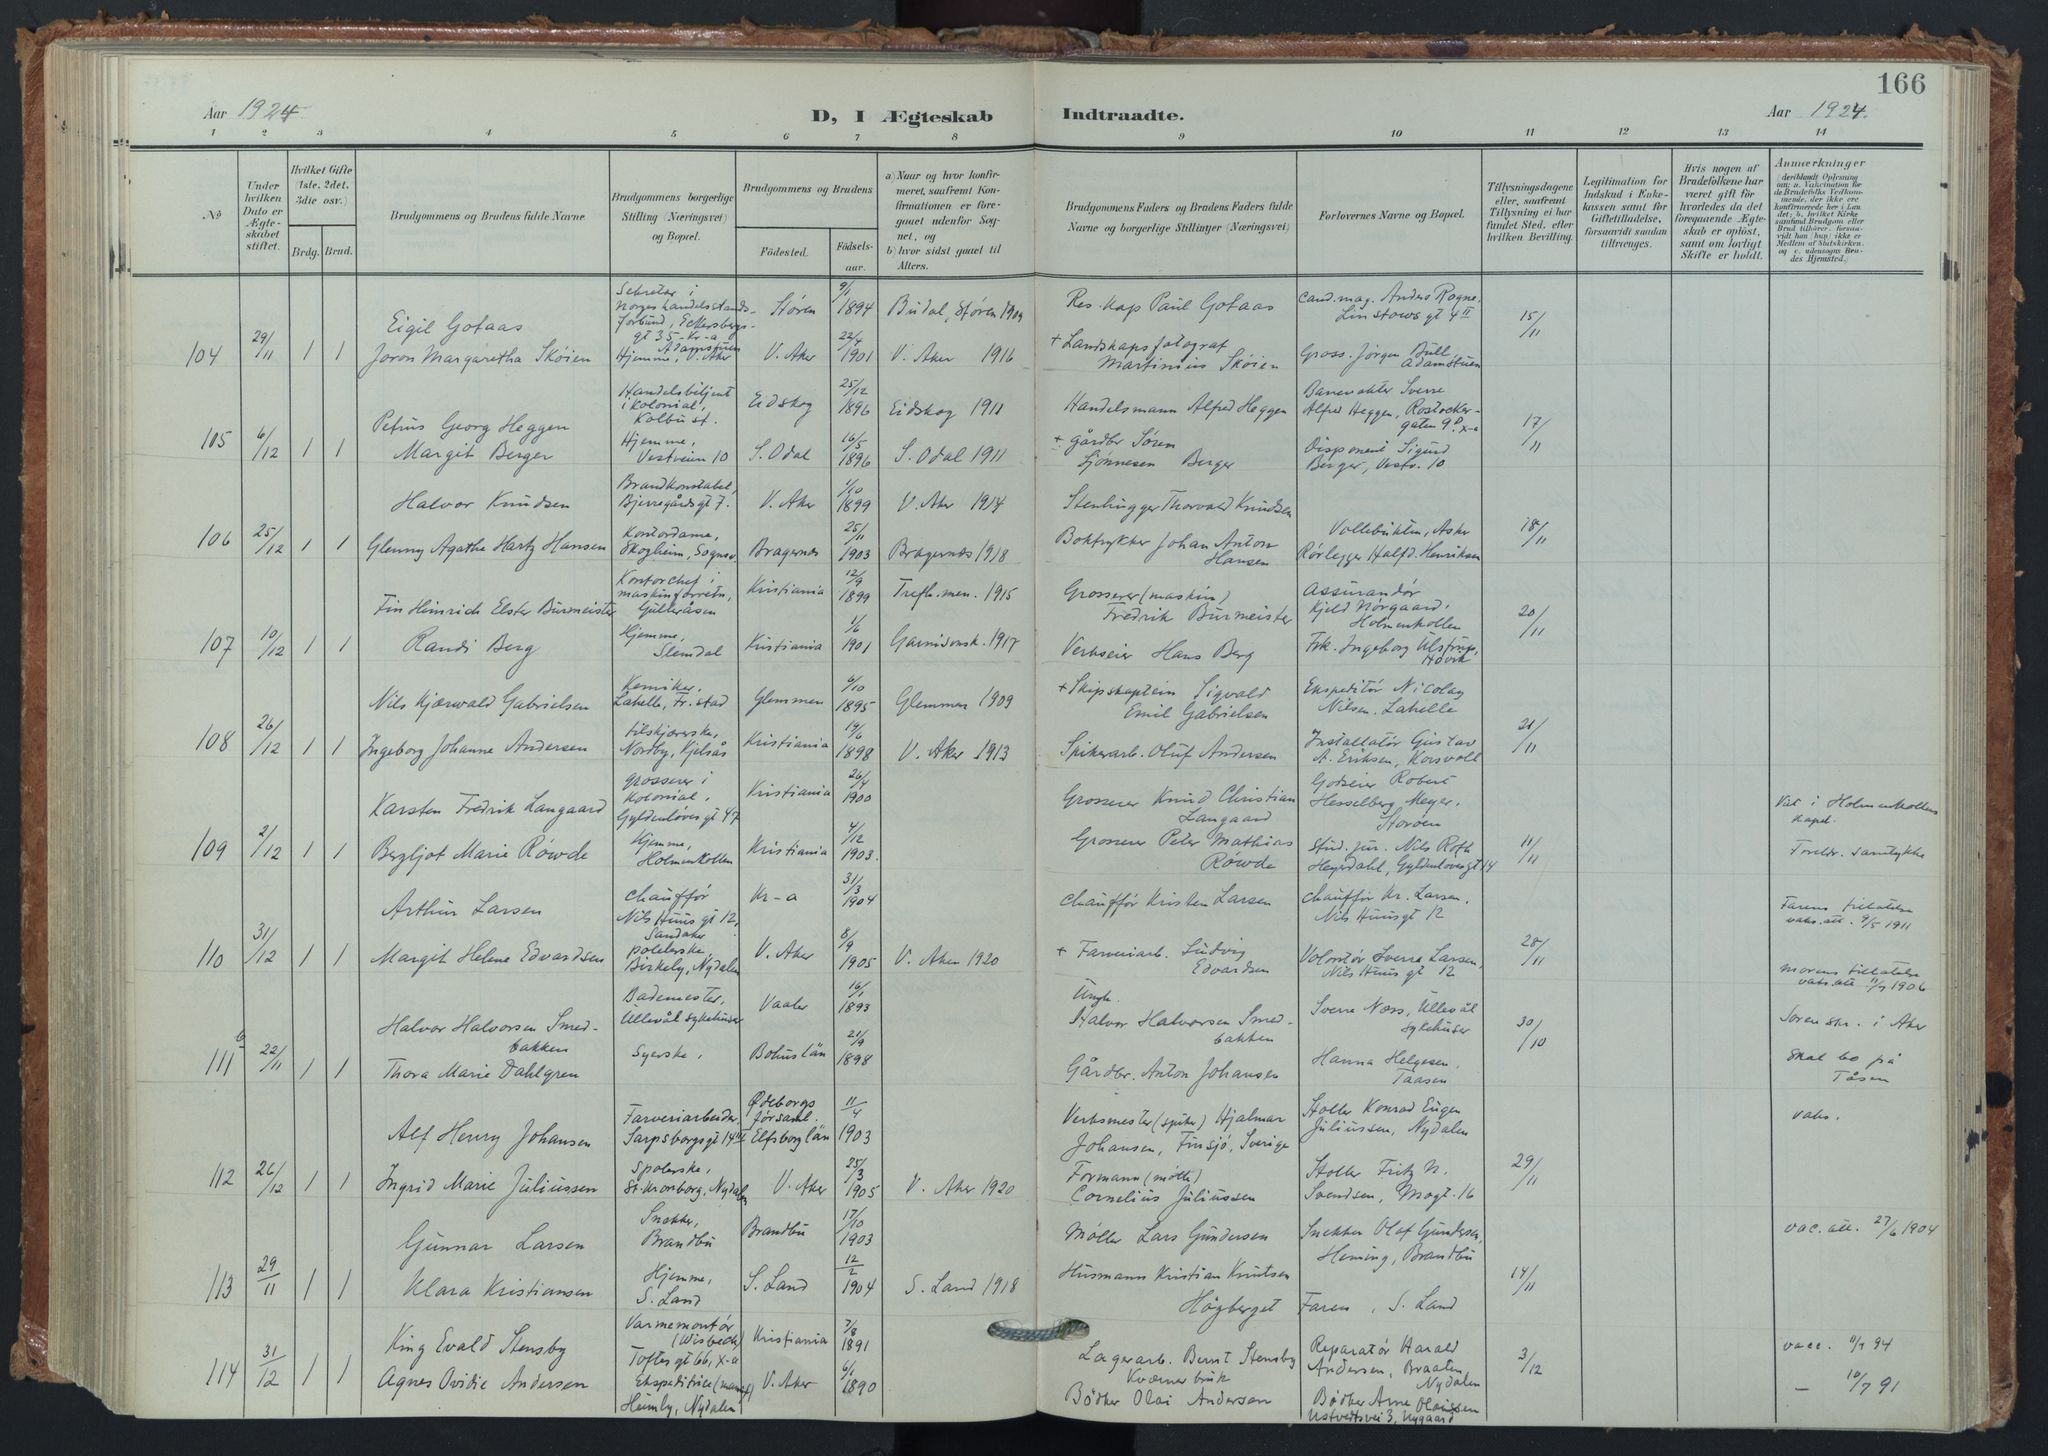 166
Aar 1924. D, I Ægteskab Indtraadte. Aar 1924.
1 2 3 4 5 6 7 8 9 10 11 12 13 14
No
Under hvilken Dato er Ægteskabet stiftet.
Hvilket Gifte (1ste, 2det, 3die osv.)
Brdg. Brud.
Brudgommens og Brudens fulde Navne
Brudgommens borgerlige Stilling (Næringsvei) og Bopæl.
Brudgommens og Brudens
Fødested. Fødsels-aar.
a) Naar og hvor konfirmeret, saafremt Konfirmationen er foregaaet udenfor Sognet, og
b) hvor sidst gaaet til Alters.
Brudgommens Faders og Brudens Faders fulde Navne og borgerlige Stillinger (Næringsvei)
Forlovernes Navne og Bopæl.
Tillysningsdagene eller, saafremt Tillysning ei har fundet Sted, efter hvilken Bevilling.
Legitimation for Indskud i Enkekassen samt for Giftetilladelse, forsaavidt saadan tiltrænges.
Hvis nogen af Brudefolkene har været gift før hvorledes da det foregaaende Ægteskab er opløst, samt om lovligt Skifte er holdt.
Anmærkninger (deriblandt Oplysning om: a. Vakcination for de Brudefolks Vedkommende, der ikke ere konfirmerede her i Landet; b. hvilket Kirkesamfund Brudgom eller Brud tilhører, forsaavidt han (hun) ikke er Medlem af Statskirken, og c. udensogns Brudes Hjemsted.)
104 29/11 1 1
Eigil Gotaas
Sekretær i Norges handelsstands-forbund, Eckersbergs-gt 35 - Kr-a
Støren 9/1 1894 Budal, Støren 1909
Res. kap Paul Gotaas
Cand. mag. Anders Rogne, Linstows gt 4 II
15/11
Joron Margaretha Skøien
Hjemme, Adamstuen V. Aker
V. Aker 22/4 1901 V. Aker 1916
+ Landskapsfotograf Martinius Skøien
Gross. Jørgen Bull, Adamstuen
105 6/12 1 1
Petrus Georg Heggen
Handelsbetjent i kolonial, Kolbu st.
Eidskog 25/12 1896 Eidskog 1911
Handelsmann Alfred Heggen
Banevokter Sverre Alfred Heggen, Rostocker-gaten 9 B. X-a
17/11
Margit Berger
Hjemme, Vestveien 10
S. Odal 16/5 1896 S. Odal 1911
+ gårdbr Søren Berger
Disponent Sigurd Berger, Vestv. 10
106 25/12 1 1
Halvor Knudsen
Brandkonstabel, Bjerregårdsgt 7.
V. Aker 1/10 1899 V. Aker 1914
Stenhugger Thorvald Knudsen
Vollebukten, Asker
18/11
Glenny Agathe Hartz Hansen
Kontordame, Skogheim, Sognsv.
Bragernæs 25/11 1903 Bragernæs 1918
Boktrykker Johan Anton Hansen
Rørlegger Halfd. Henriksen
107 10/12 1 1
Fin Heinrich Elster Burmeister
Kontorchef i maskinforretn, Gulleråsen
Kristiania 12/9 1899 Trefh. men. 1915
Grosserer (maskin) Fredrik Burmeister
Assurandør Kjeld Nørgaard, Holmenkollen
20/11
Randi Berg
Hjemme, Slemdal
Kristiania 1/6 1901 Garnisonsk. 1917
Verkseier Hans Berg
Frk. Ingeborg Ulstrup, Høvik
108 26/12 1 1
Nils Kjærwald Gabrielsen
Kemiker, Lahelle, Fr.stad
Glemmen 6/10 1895 Glemmen 1909
+ Skipskaptein Sigvald Emil Gabrielsen
Ekspeditør Nicolay Nilsen, Lahelle
21/11
Ingeborg Johanne Andersen
tilskjærerske, Nordby, Kjelsås
Kristiania 19/6 1898 V. Aker 1913
Spikerarb. Oluf Andersen
Installatør Gustav A. Eriksen, Korsvoll
109 2/12 1 1
Karsten Fredrik Langaard
grosserer i kolonial, Gyldenløves gt 47
Kristiania 26/4 1900
Grosserer Knud Christian Langaard
Godseier Robert Hesselberg Meyer, Storøen
11/11
Viet i Holmenkollens kapel.
Bergljot Marie Røwde
Hjemme, Holmenkollen
Kristiania 4/12 1903.
Grosserer Peter Mathias Røwde
Stud. jur. Nils Roth Heyerdahl, Gyldenløvesgt 14
Foreldr. samtykke
110 31/12 1 1
Arthur Larsen
Chauffør Nils Huus gt 12, Sandaker
Kr-a 31/3 1904
Chauffør Kristen Larsen
Chauffør Kr. Larsen, Nils Huusgt 12
28/11
Farens tillatelse vaks. att. 9/5 1911
Margit Helene Edvardsen
polererske Birkely, Nydalen
V. Aker 8/9 1905 V. Aker 1920
+ Farveriarb. Ludvig Edvardsen
Volontør Sverre Larsen, Nils Huus gt 12
Morens tillatelse vaks. att 11/7 1906
111 22/11 1 1
Halvor Halvorsen Smed-bakken
Bademester, Ullevål sykehuser
Vaaler 16/1 1893
Ungk. Halvor Halvorsen Smed-bakken
Sverre Næss, Ullevål sykehuser
30/10
Soren skr. i Aker
Thora Marie Dahlgren
Syerske,
Bohuslän 21/9 1898
Gårdbr. Anton Johansen
Hanna Helgesen, Taasen
Skal bo på Tåsen
112 26/12 1 1
Alf Henry Johansen
Farveriarbeider, Sarpsborggt 14 II
Ødeborgs församl. Elfsborg län 11/4 1903
Verksmester (spiker) Hjalmar Johansen, Finsjö, Sverige
Stoller Konrad Eugen Juliussen, Nydalen
29/11
vaks.
Ingrid Marie Juliussen
Spolerske, St. Kronborg, Nydalen
V. Aker 25/3 1905 V. Aker 1920
Formann (mølle) Cornelius Juliussen
Stoller Fritz N. Svendsen, Mogt. 16
113 29/11 1 1
Gunnar Larsen
Snekker, Brandbu
Brandbu 17/10 1903
Møller Lars Gundersen
Snekker Olaf Gundersen, Heming, Brandbu
14/11
vac. att. 27/6 1904
Klara Kristiansen
Hjemme, S. Land
S. Land 12/2 1904 S. Land 1918
Husmann Kristian Knutsen Høgberget
Faren, S. Land
114 31/12 1 1
King Evald Stensby
Varmemontør (Wisbech) Toftes gt 66, X-a
Kristiania 7/8 1891
Lagerarb. Bernt Stensby Kværner bruk
Reparatør Harald Andersen, Braaten, Nydalen
3/12
vacc. 11/9 94
Agnes Ovidie Andersen
Ekspeditrice Heimly, Nydalen
V. Aker 6/1 1890
Bødker Olai Andersen
Bødker Arne Olaussen Ustvedtsvei 3, Nygaard
— 10/7 91